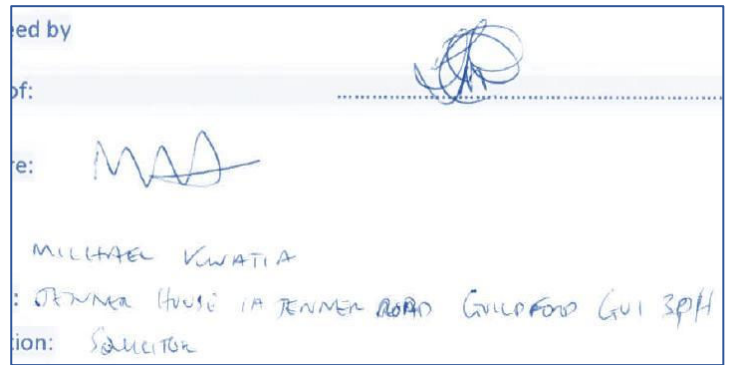 ed by
of:
re:
MICHAEL KWATIA
: JENNER HOUSE 1A JENNER ROAD GUILDFORD GU1 3PH
ion: SOLICITOR